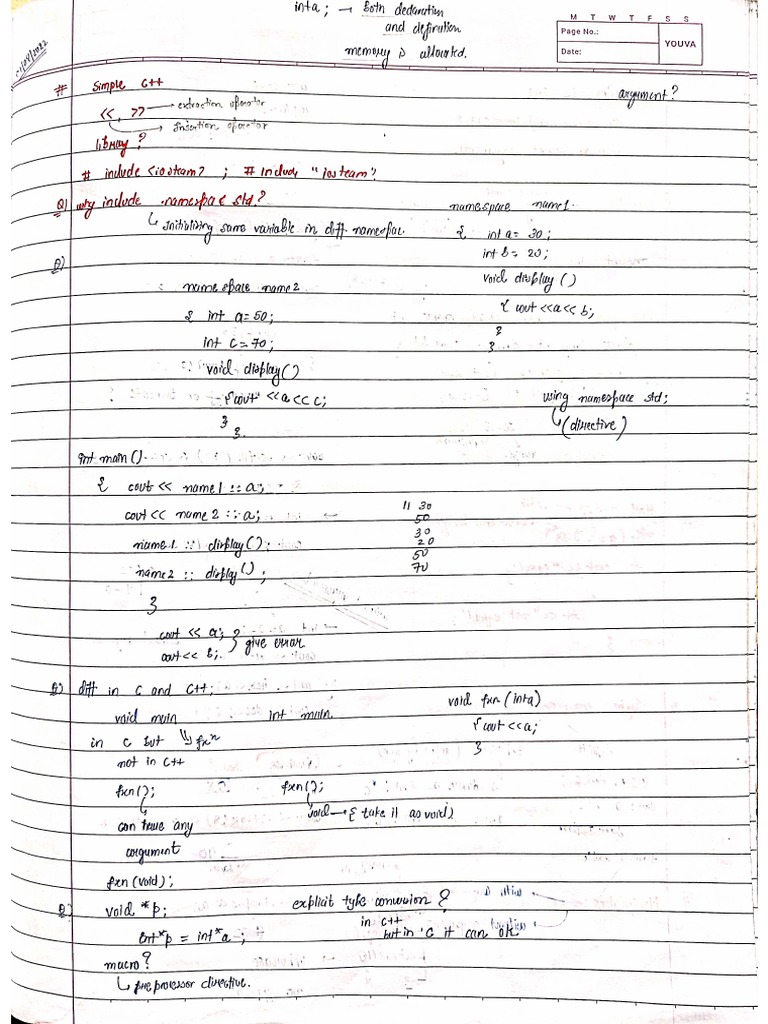 int a; → Both declaration
and definition
memory is allocated.
M T W T F S S
Page No.:
Date:
YOUVA
# Simple C++
argument?
<<, >> → extraction operator
→ Insertion operator
library?
# include <iosteam> ; # Include "iosteam".
Q) why include namespace std.?
↳ Initializing same variable in diff. namespac
namespace name1.
{ int a = 30;
int b = 20;
void display ()
{ cout <<a<< b;
}
}
Q)
namespace name2
{ int a=50;
int c=70;
void display()
{cout <<a<<c;
}
}.
using namespace std;
↳ (directive)
int main()
{ cout << name1 :: a;
cout << name 2 :: a;
name1 :: display();
name2 :: display();
}
// 30
50
30
20
50
70
cout << a; }
cout << b; } give error
Q) diff in C and C++;
void main int main.
in C but fxn
not in C++
void fxn (int a)
{ cout <<a;
}
fxn(); fxn();
↳ void → { take it as void)
can have any
argument
fxn (void);
Q) void *p; explicit type conversion?
in C++
but in 'C it can ok
int*p = int*a ;
macro?
↳ preprocessor directive.